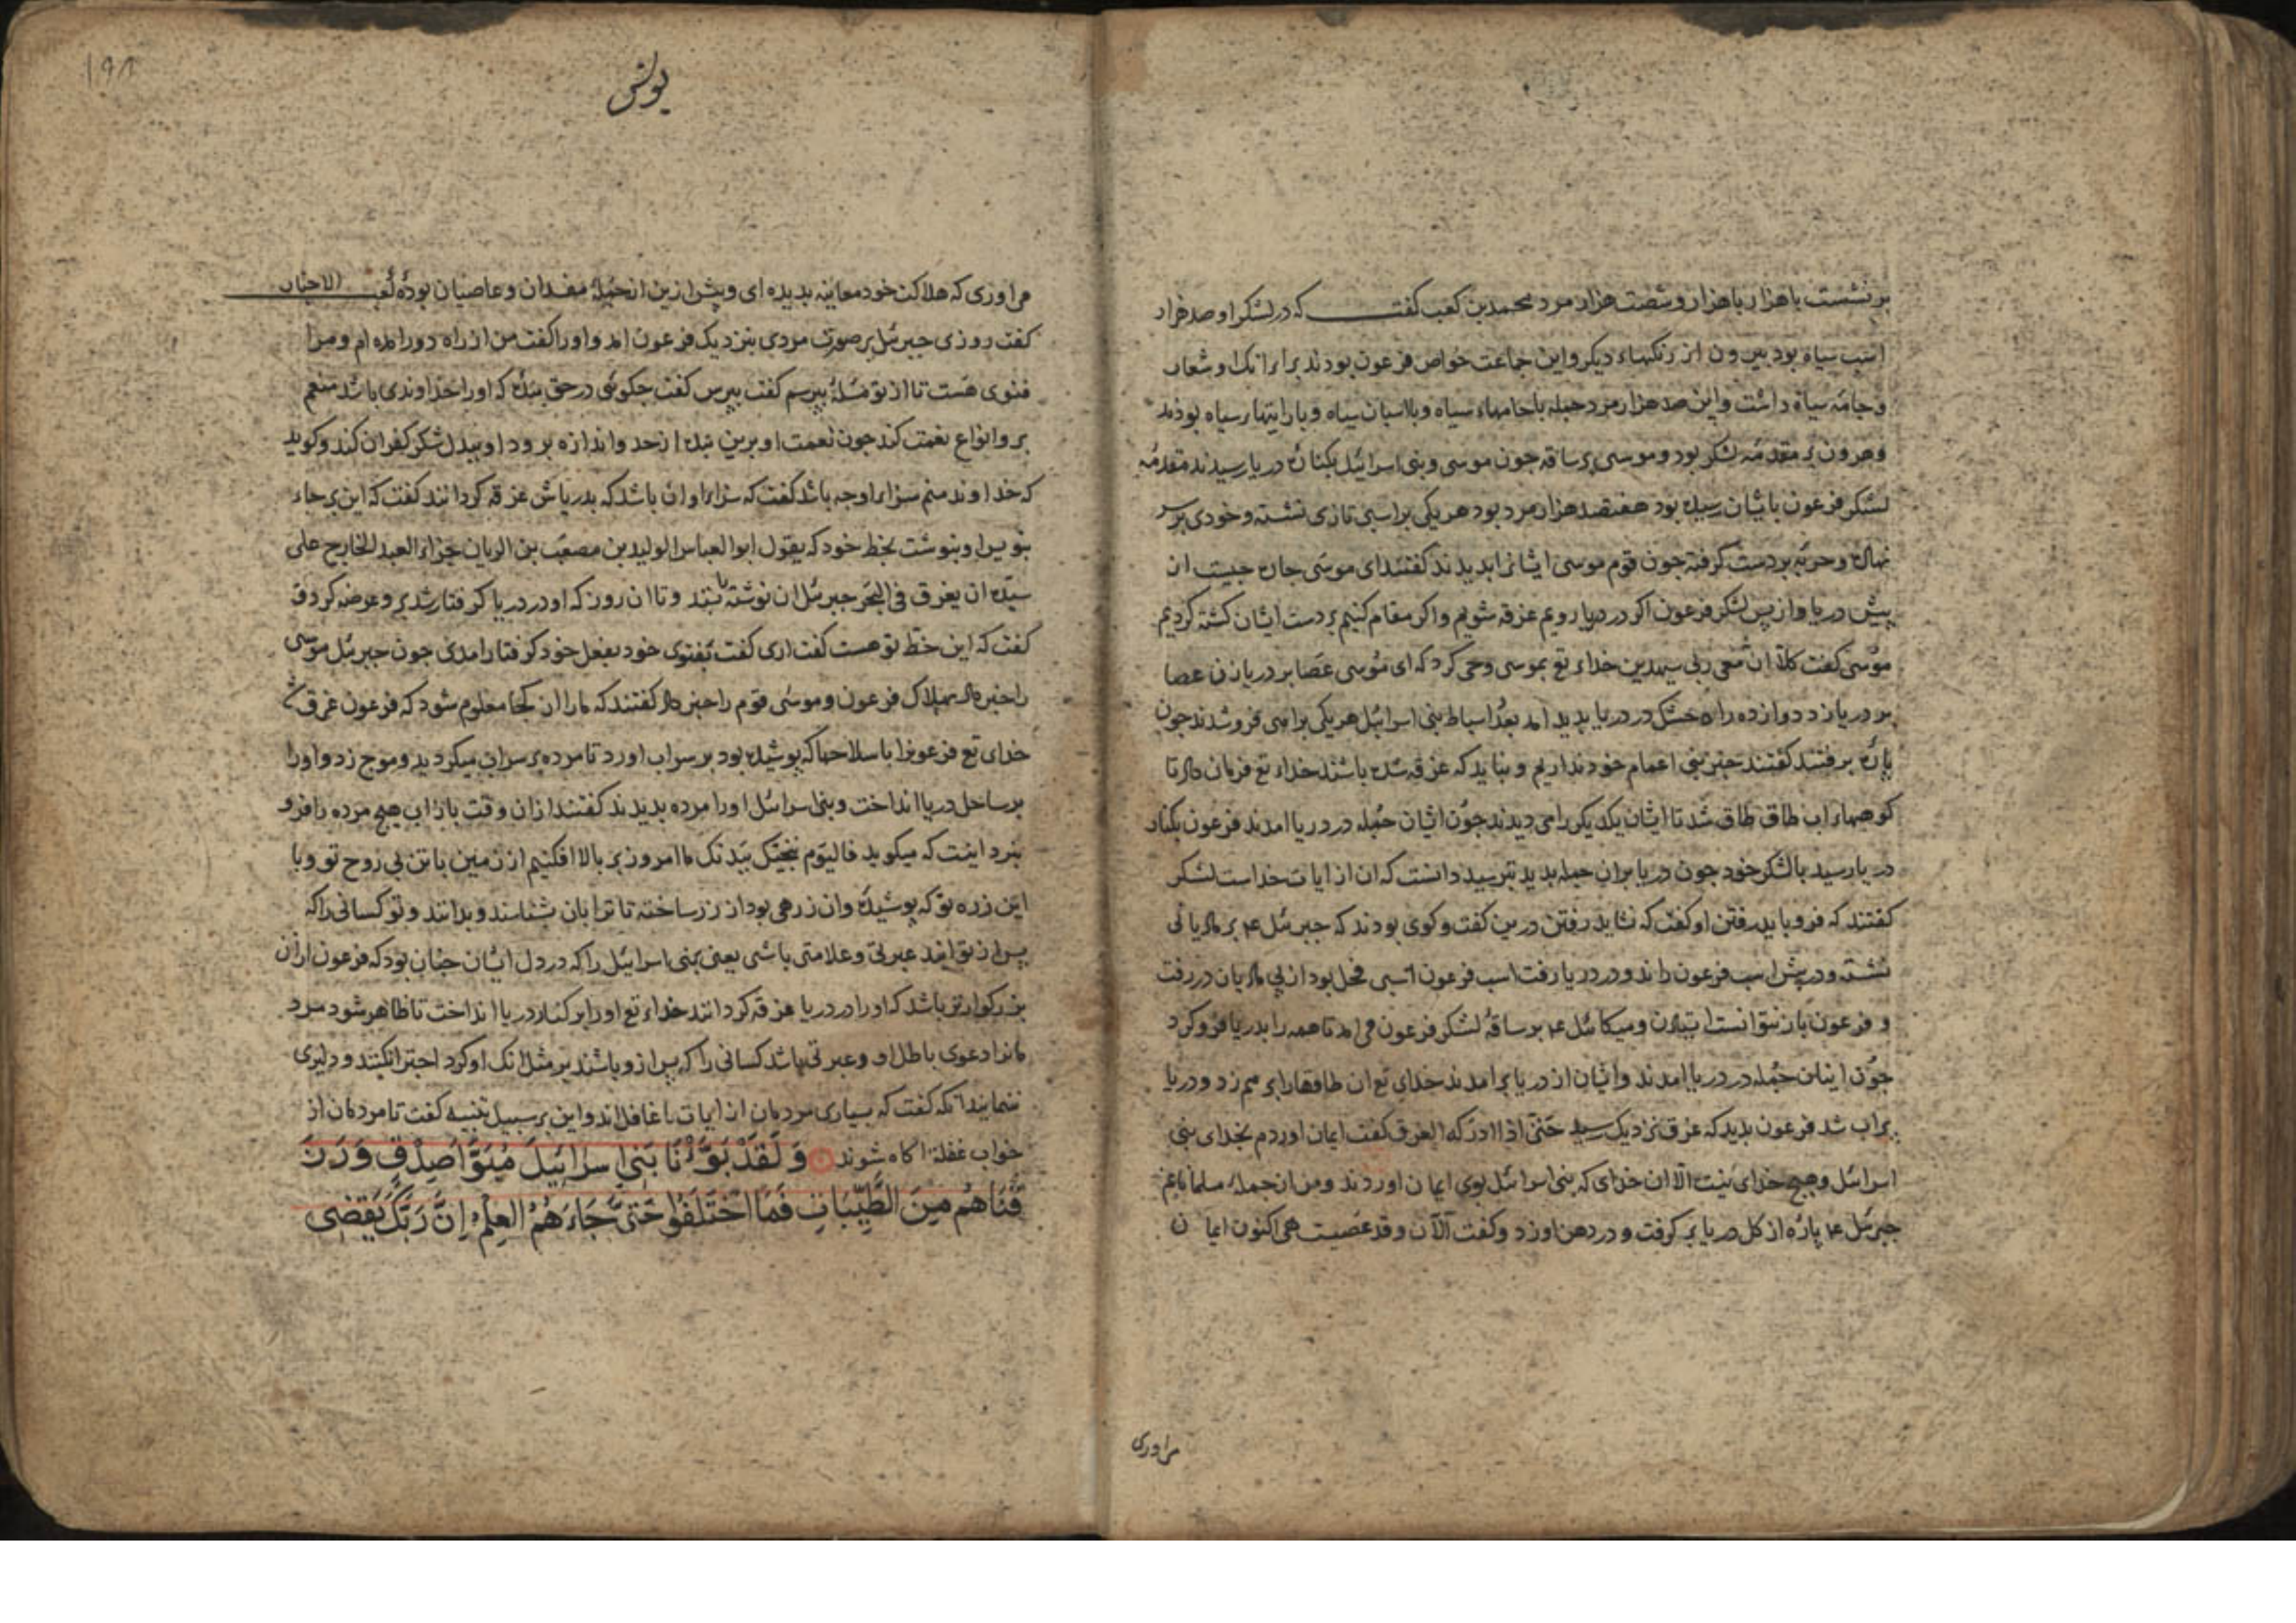 برنشست با هزار با هزار و شصت هزار مرد محمد بن کعب کفت که در لشکر او صد هزار
اسب سیاه بود بیرون از رنکهاء دیکر و این جماعت خواص فرعون بودند برابر انک او شعار
و جامه سیاه داشت و این صد هزار مرد جمله با جامهاء سیاه و با اسبان سیاه و با رایتهاء سیاه بودند
و هرون بر مقدمه لشکر بود و موسی بر ساقه جون موسی و بنی اسرائیل بکناره دریا رسیدند مقدمهٔ
لشکر فرعون بایشان رسیده بود هفتصد هزار مرد بود هر یکی بر اسبی تازی نشسته و خودی بر سر
نهاده و حربه بر دست کرفته جون قوم موسی ایشانرا بدیدند کفتند ای موسی جاره جیست از
پیش دریا و از پس لشکر فرعون اکر در دریا رویم غرقه شویم و اکر مقام کنیم بر دست ایشان کشته کردیم
موسی کفت کلا ان معی ربی سیهدین خداء تع بموسی وحی کرد که ای موسی عصا بر دریا زن عصا
بر دریا زد دوازده راه خشک در دریا بدید امد بعدد اسباط بنی اسرائیل هر یکی براهی فرو شدند جون
پاره برفتند کفتند خبر بنی اعمام خود نداریم و نباید که غرقه شده باشند خداء تع فرمان داد تا
کوههاء اب طاق طاق شد تا ایشان یکدیکر را می دیدند جون ایشان جمله در دریا امدند فرعون بکنار
دریا رسید با لشکر خود جون دریا بران جمله بدید بترسید دانست که ان از ایات خداست لشکر
کفتند که فرو باید رفتن او کفت که نشاید رفتن درین کفت و کوی بودند که جبرئل ع م بر مادیانی
نشسته و در پیش اسب فرعون راند و در دریا رفت اسب فرعون اسبی فحل بود از پی مادیان در رفت
و فرعون باز نتوانست استادن و میکائیل ع م بر ساقهٔ لشکر فرعون می امد تا همه را بدریا فرو کرد
جون اینان جمله در دریا امدند و ایشان از دریا بر امدند خدای تع ان طاقها را بر هم زد و دریا
پر اب شد فرعون بدید که غرق نزدیک رسید حتی اذا ادرکه الغرق کفت ایمان اوردم بخدای بنی
اسرائیل و هیچ خدای نیست الا ان خدای که بنی اسرائیل بوی ایمان اوردند و من از جمله مسلمانانم
جبرئل ع م پاره از کل دریا بر کرفت و در دهن او زد و کفت آلآن و قد عصیت هی اکنون ایمان
می اوری
یونس
می اوری که هلاکت خود معاینه بدیده ای و پیش ازین از جمله مفسدان و عاصیان بودهٔ کعب الاحبار
کفت روزی جبرئل بر صورت مردی بنزدیک فرعون امد و او را کفت من از راه دور امده ام و مرا
فتوی هست تا از تو مسئله بپرسم کفت بپرس کفت جکوئی در حق بنده که او را خداوندی باشد منعم
بر وانواع نعمت کند جون نعمت او برین بنده از حد و اندازه برود او ببدل شکر کفران کند و کوید
که خداوند منم سزاء او جه باشد کفت که سزاء او ان باشد که بدریاش غرقه کردانند کفت که این بر جاء
بنویس او بنوشت بخط خود که یقول ابو العباس الولید بن مصعب بن الریان جزاء العبد الخارج علی
سیده ان یغرق فی البحر جبرئل ان نوشته بستد و تا ان روز که او در دریا کرفتار شد برو عرضه کرد و
کفت که این خط تو هست کفت اری کفت بفتوی خود بفعل خود کرفتار امدی جون جبرئل موسی
را خبر داد بهلاک فرعون و موسی قوم را خبر داد کفتند که ما را از کجا معلوم شود که فرعون غرق شد
خدای تع فرعونرا با سلاحها که پوشیده بود بر سر اب اورد تا مرده بر سر اب میکردید و موج زد و او را
بر ساحل دریا انداخت و بنی اسرائیل او را مرده بدیدند کفتند از ان وقت باز اب هیچ مرده را فرو
نبرد اینست که میکوید فالیوم ننجیک ببدنک ما امروز بر بالا افکنیم از زمین با تن بی روح تو و با
این زره تو که پوشیدهٔ وان زرهی بود از زر ساخته تا ترا بان بشناسند و بدانند و تو کسانی را که
پس از تو ایند عبرتی و علامتی باشی یعنی بنی اسرائیل را که در دل ایشان جنان بود که فرعون ازان
بزرکوارتر باشد که او را در دریا غرقه کردانند خداء تع او را بر کنار دریا انداخت تا ظاهر شود مرد
مانرا دعوی باطل او و عبرتی باشد کسانی را که پس ازو باشند بر مثل انک او کرد اجترا نکنند و دلیری
ننمایند انکه کفت که بسیاری مردمان از ایات ما غافل اند و این بر سبیل تنبیه کفت تا مردمان از
خواب غفلة اکاه شوند وَ لَقَدْ بَوَّأْنَا بَنِي إسرَائيلَ مُبَوَّأَ صِدْقٍ وَرَزَ
قْنَاهُم مِنَ الطَّيِّبَاتِ فَمَا اخْتَلَفُوا حَتَّى جَاءَهُمُ العِلْمُ إِنَّ رَبَّكَ يَقْضِي